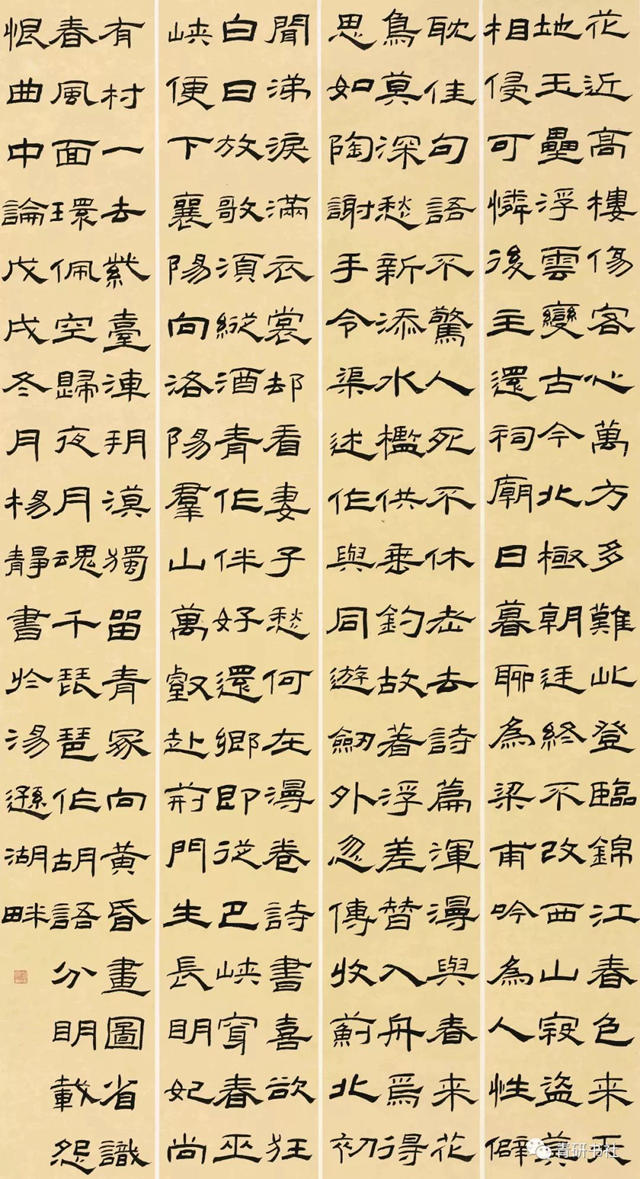 花近高樓傷客心萬方多難此登臨錦江春色来天
地玉壘浮雲變古今北極朝廷終不改西山寇盗莫
相侵可憐後主還祠廟日暮聊為梁甫吟為人性僻
耽佳句語不驚人死不休老去詩篇渾漫與春来花
鳥莫深愁新添水檻供垂釣故著浮差替入舟焉得
思如陶謝手令渠述作與同遊劒外忽傳收薊北初
聞涕淚滿衣裳却看妻子愁何在漫卷詩書喜欲狂
白日放歌湏縱酒青作伴好還鄉即從巴峽穿春巫
峽便下襄陽向洛陽羣山萬壑赴荊門生長明妃尚
有村一去紫臺連朔漠獨留青冢向黃昏畫圖省識
春風面環佩空歸夜月魂千琵琶作胡語分明載怨
恨曲中論戊戌冬月楊靜書於湯遜湖畔
青研书社